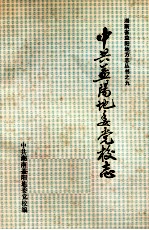 湖南省益阳地方志丛书之九
中共益阳地委党校志
中共湖南益阳地委党校编